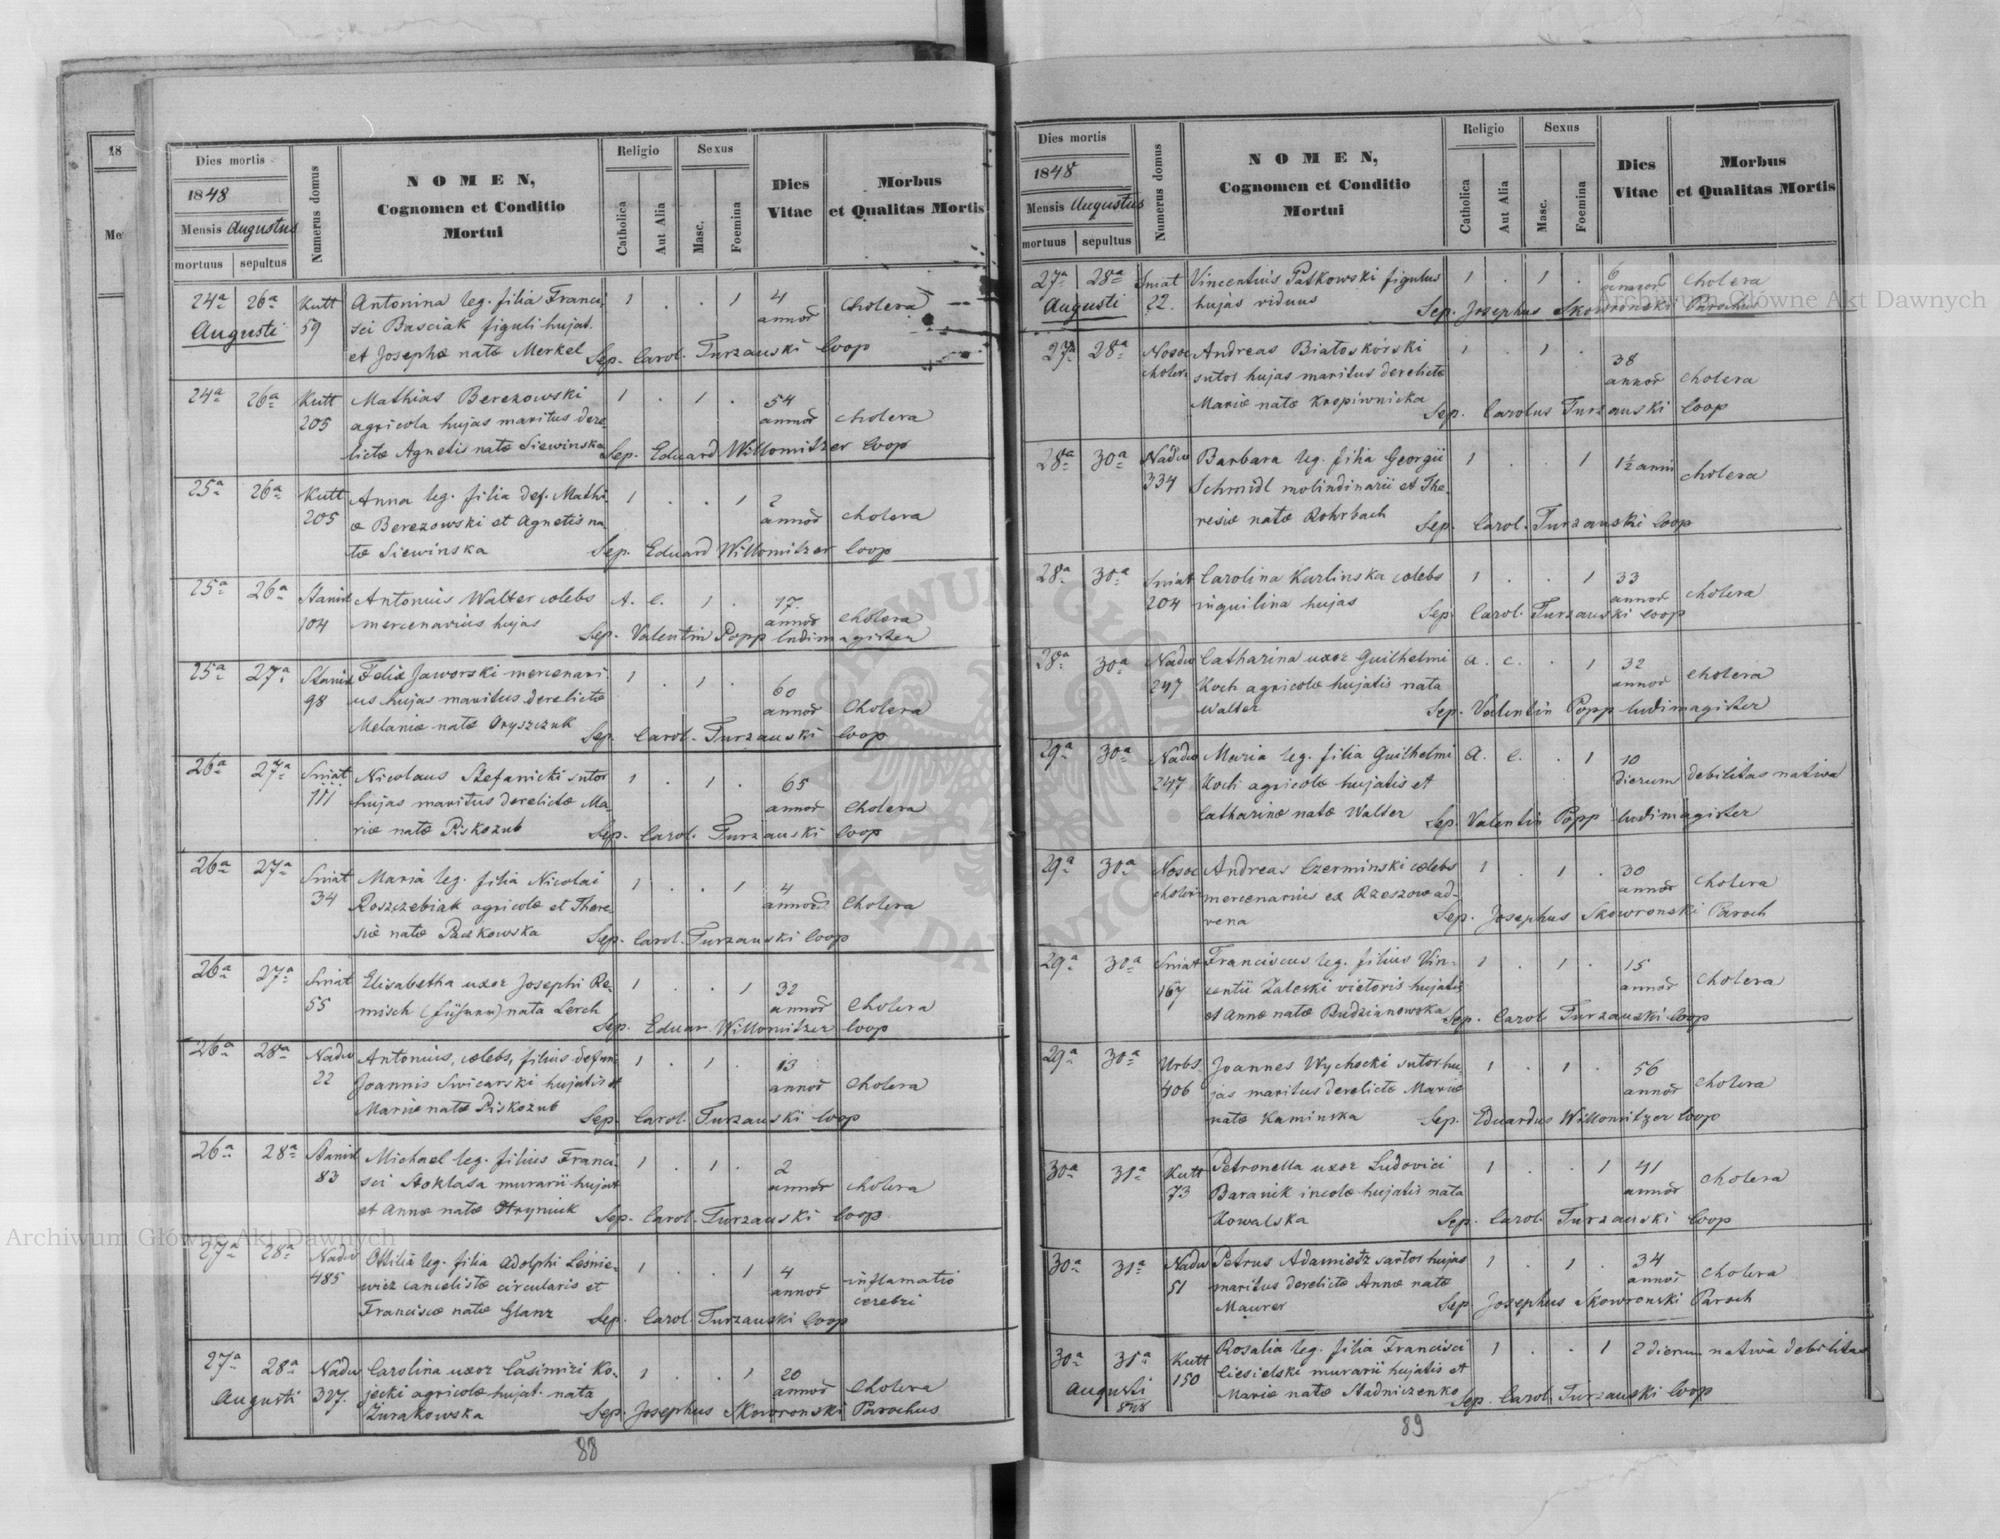 18
Me
Dies mortis
1848
Mensis Augustus
mortuus sepultus
Numerus domus
NOMEN,
Cognomen et Conditio
Mortui
Religio
Catholica
Aut Alia
Sexus
Masc.
Foemina
Dies
Vitae
Morbus
et Qualitas Mortis
24a 26a Kutt Antonina leg. filia Franci- 1 . . 1 4 Cholera
Augusti 59 sci Basciak figuli hujat. annor
et Josephæ natæ Merkel Sep. Carol. Turzauski Coop
24a 26a Kutt Mathias Berezowski 1 . 1 . 54
205 agricola hujas maritus dere- annor Cholera
lictæ Agnetis natæ Siewinska Sep. Eduard Willomitzer Coop
25a 26a Kutt Anna leg. filia def. Mathi- 1 . . 1 2
205 æ Berezowski et Agnetis na- annor Cholera
tæ Siewinska Sep. Eduard Willomitzer Coop
25a 26a Stanisl Antonius Walter cœlebs A. C. 1 . 17 Cholera
104 mercenarius hujas annor
Sep. Valentin Popp ludimagister
25a 27a Stanisl Felix Jaworski mercenari- 1 . 1 . 60
98 us hujas maritus derelictæ annor Cholera
Melaniæ natæ Gryszczuk Sep. Carol. Turzauski Coop
26a 27a Sniat Nicolaus Stefanicki sutor 1 . 1 . 65
111 hujas maritus derelictæ Ma- annor Cholera
riæ natæ Piskozub Sep. Carol. Turzauski Coop
26a 27a Sniat Maria leg. filia Nicolai 1 . . 1 4
34 Roszczebiak agricolæ et There- annor Cholera
siæ natæ Paskowska Sep. Carol. Turzauski Coop
26a 27a Sniat Elisabetha uxor Josephi Re- 1 . . 1 32
55 misch nata Lerch annor Cholera
Sep. Eduar. Willomitzer Coop
26a 28a Nadw Antonius, cœlebs, filius defun. 1 . 1 . 13
22 Joannis Swicarski hujatis et annor Cholera
Mariæ natæ Piskozub Sep. Carol. Turzauski Coop
26a 28a Stanisl Michael leg. filius Franci- 1 . 1 . 2
83 sci Stoklasa murarii hujat annor Cholera
et Annæ natæ Hryniuk Sep. Carol. Turzauski Coop.
27a 28a Nadw Ottilia leg. filia Adolphi Leśnie- 1 . . 1 4 inflamatio
485 wicz cancelistæ circularis et annor cerebri
Franciscæ natæ Glanz Sep. Carol. Turzauski Coop
27a 28a Nadw Carolina uxor Casimiri Ko- 1 . . 1 20
Augusti 327. jecki agricolæ hujat. nata annor Cholera
Żurakowska Sep. Josephus Skowronski Parochus
88
Dies mortis
1848
Mensis Augustus
mortuus sepultus
Numerus domus
NOMEN,
Cognomen et Conditio
Mortui
Religio
Catholica
Aut Alia
Sexus
Masc.
Foemina
Dies
Vitae
Morbus
et Qualitas Mortis
27a 28a Sniat Vincentius Patkowski figulus 1 . 1 . 6 Cholera
Augusti 22. hujas viduus annor
Sep. Josephus Skowronski Parochus
27a 28a Nosoc Andreas Białoskórski 1 . 1 . 38
choler. sutor hujas maritus derelictæ annor Cholera
Mariæ natæ Kropiwnicka Sep. Carolus Turzauski Coop
28a 30a Nadw Barbara leg. filia Georgii 1 . . 1 1½ anni Cholera
334 Schmidl molindinarii et The-
resiæ natæ Rohrbach Sep. Carol. Turzauski Coop
28a 30a Sniat Carolina Karlinska cœlebs 1 . . 1 33 Cholera
204 inquilina hujas annor
Sep. Carol. Turzauski Coop
28a 30a Nadw Catharina uxor Guilhelmi a. c. . 1 32 Cholera
247 Koch agricolæ hujatis nata annor
Walter Sep. Valentin Popp ludimagister
29a 30a Nadw Maria leg. filia Guilhelmi a. c. . 1 10
247 Koch agricolæ hujatis et dierum debilitas nativa
Catharinæ natæ Walter Sep. Valentin Popp ludimagister
29a 30a Nosoc Andreas Czerminski cœlebs 1 . 1 . 30 Cholera
choler. mercenarius ex Rzeszow ad- annor
vena Sep. Josephus Skowronski Paroch
29a 30a Sniat Franciscus leg. filius Vin- 1 . 1 . 15 Cholera
167 centii Zaleski vietoris hujatis annor
et Annæ natæ Budzianowska Sep. Carol Turzauski Coop
29a 30a Urbs Joannes Wychocki sutor hu- 1 . 1 . 56 Cholera
406 jas maritus derelictæ Mariæ annor
natæ Kaminska Sep. Eduardus Willomitzer Coop
30a 31a Kutt Petronella uxor Ludovici 1 . . 1 41 Cholera
73 Baranik incolæ hujatis nata annor
Kowalska Sep. Carol. Turzauski Coop
30a 31a Nadw Petrus Adamietz sartor hujas 1 . 1 . 34 Cholera
51 maritus derelictæ Annæ natæ annor
Maurer Sep. Josephus Skowronski Paroch
30a 31a Kutt Rosalia leg. filia Francisci 1 . . 1 2 dierum nativa debilitas
Augusti 150 Ciesielski murarii hujatis et
848 Mariæ natæ Stadniczenko Sep. Carol. Turzauski Coop
89
Archiwum Główne Akt Dawnych
Archiwum Główne Akt Dawnych
ARCHIWUM GŁÓWNE AKT DAWNYCH